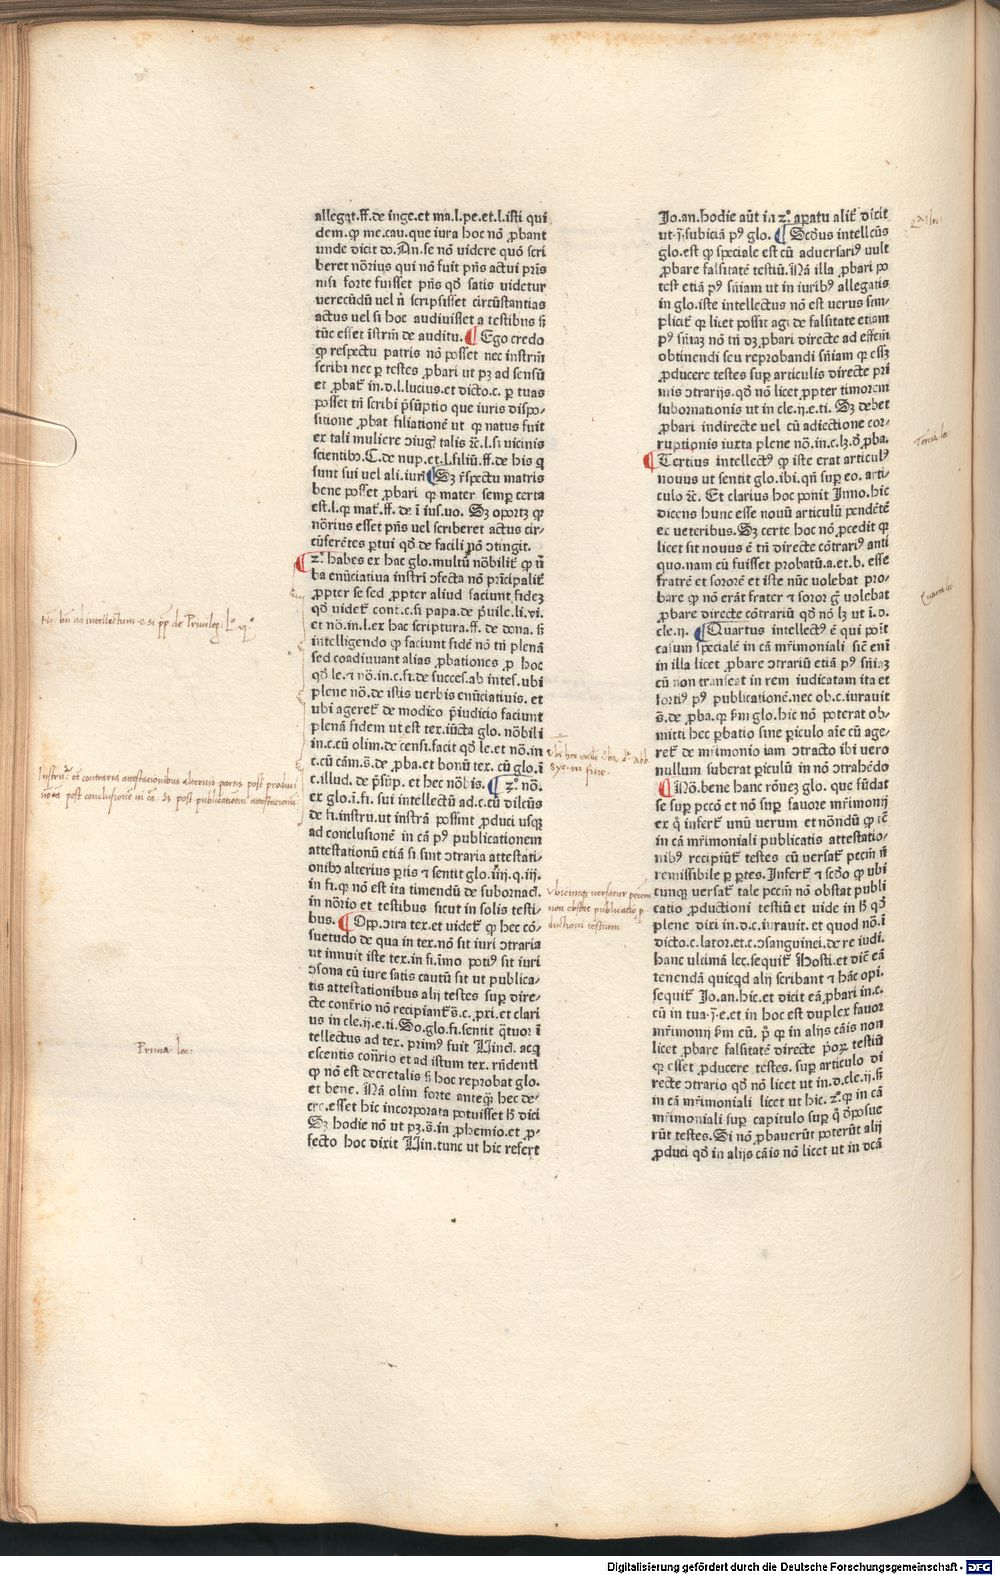 allegat.ff.de inge.et ma.l.pe.et.l.isti qui
dem.ꝙ me.cau.que iura hoc nō ꝓbant
unde dicit do.An.se nō videre quō scri
beret nōrius qui nō fuit pn̄s actui priꝰ
nisi forte fuisset pn̄s qđ satis videtur
verecūdū vel n̄ scripsisset circūstantias
actus vel si hoc audivisset a testibus ſꝫ
tūc esset īstrm̄ de auditu. ¶ Ego credo
ꝙ respectu patris nō posset nec instrm̄
scribi nec ꝑ testes ꝓbari ut pꝫ ad sensū
et ꝓbat̄ in.d.l.lucius.et dicto.c. ꝑ tuas
posset tn̄ scribi p̄sūptio que iuris dispo-
sitione ꝓbat filiationē ut ꝙ natus fuit
ex tali muliere ↄiuḡ talis ⁊c̄.l.si vicinis
scientibꝰ.C.de nup.et.l.filiū.ff.de his q
sunt sui vel ali.iur̄ ¶ Sꝫ r̄spectu matris
bene posset ꝓbari ꝙ mater semꝑ certa
est.l.ꝙ mat̄.ff.de ī ius.vo. Sꝫ oportꝫ ꝙ
nōrius esset pn̄s vel scriberet actus cir-
cūferētes ꝑtui qđ de facili nō ↄtingit.
¶ 2º habes ex hac glo.multū nōbilit̄ ꝙ v̄
ba enūciativa instri ↄfecta nō prīcipalit̄
ꝓpter se sed ꝓpter aliud faciunt fidē
qđ videt̄ cont.c.si papa.de p̄vile.li.vi.
et nō.in.l.ex hac scriptura.ff. de dona. ſꝫ
intelligendo ꝙ faciunt fidē nō tn̄ plenā
sed coadiuvant alias ꝓbationes ꝓ hoc
qđ le.⁊ nō.in.c.fi.de succes.ab intes.ubi
plene nō.de istis verbis enūciativis. et
ubi ageret̄ de modico p̄iudicio faciunt
plenā fidem ut est tex.iūcta glo. nōbili
in.c.cū olim.de censi.facit qđ le.et nō.in
c.cū cām.s̄.de ꝓba.et bonū tex. cū glo.ī
c.illud. de p̄sūp. et hec nōbis. ¶ 2º nō.
ex glo.ī.fi. sui intellectū ad.c.cū dilcūs
de fi.instru.ut instrā possint ꝓduci usqꝫ
ad conclusionē in cā pꝰ publicationem
attestationū etiā si sint ↄtraria attestati-
onibꝰ alterius ꝑtis ⁊ sentit glo.iiij.q.iij.
in fi.ꝙ nō est ita timendū de subornacī.
in nōrio et testibus sicut in solis testi-
bus. ¶ Opp.ↄtra tex.et videt̄ ꝙ hec cō-
suetudo de qua in tex.nō sit iuri ↄtraria
ut innuit iste tex.in fi.īmo potiꝰ sit iuri
ↄsona cū iure satis cautū sit ut publica-
tis attestationibus alij testes suꝑ dire-
cte cont̄rio nō recipiant̄ s̄.c. ꝓxi.et clari
us in cle.ij.e.ti. So.glo.fi.sentit q̄tuor ī
tellectus ad tex. primꝰ fuit Vincī. acq
escentis con̄rio et ad istum tex. rn̄denti
ꝙ nō est decretalis ſꝫ hoc reprobat glo.
et bene. Nā olim forte anteqꝫ hec de-
cre.esset hic incorporata potuisset ħ dici
Sꝫ hodie nō ut pꝫ.s̄.in ꝓhemio.et ꝓ-
fecto hoc dixit Vin.tunc ut hic refert
Jo.an.hodie aūt in 2º aꝑatu alit̄ dixit
ut.j̄.subiciā pꝰ glo. ¶ Secđus intellcūs
glo.est ꝙ speciale est cū adversariꝰ vult
ꝓbare falsitatē testiū.Nā illa ꝓbari po
test etiā pꝰ sn̄iam ut in iuribꝰ allegatis
in glo.iste intellectus nō est verus sim-
plicit̄ ꝙ licet possit agi de falsitate etiam
pꝰ sn̄iaꝫ nō tn̄ dꝫ ꝓbari directe ad effem̄
obtinendi seu reprobandi sn̄iam ꝙ essꝫ
ꝓducere testes suꝑ articulis directe pri
mis ↄtrarijs.qđ nō licet ꝓpter timorem
subornationis ut in cle.ij.e.ti. Sꝫ debet
ꝓbari indirecte vel cū adiectione cor-
ruptionis iuxta plene nō.in.c.lꝫ.đ ꝓba.
¶ Tertius intellectꝰ ꝙ iste erat articulꝰ
novus ut sentit glo.ibi.qn̄ suꝑ eo. arti-
culo ⁊c̄. Et clarius hoc ponit Inno.hic
dicens hunc esse novū articulū pendētē
ex veteribus.Sꝫ certe hoc nō ꝓcedit ꝙ
licet sit novus ē tn̄ directe cōtrariꝰ anti
quo.nam cū fuisset probatū.a.et.b. esse
fratrē et sororē et iste nūc volebat pro-
bare ꝙ nō erāt frater ⁊ soror g̊ volebat
ꝓbare directe cōtrariū qđ nō lꝫ ut ī.d.
cle.ij. ¶ Quartus intellectꝰ ē qui poīt
casum specialē in cā mr̄imoniali sic̄ enī
in illa licet ꝓbare ↄtrariū etiā pꝰ sn̄iaꝫ
cū non transeat in rem iudicatam ita et
fortiꝰ pꝰ publicationē.nec ob.c.iuravit
s̄.de ꝓba.ꝙ fm̄ glo.hic nō poterat ob-
mitti hec ꝓbatio sine piculo aīe cū age-
ret̄ de mr̄imonio iam ↄtracto ibi vero
nullum suberat piculū in nō ↄtrahēdo
¶ Nō.bene hanc rōneꝫ glo. que fūdat
se suꝑ pccō et nō suꝑ favore mr̄imonij
ex q̊ infert̄ unū verum et nōndū ꝙ ī
in cā mr̄imoniali publicatis attestatio-
nibꝰ recipiūt̄ testes cū versat̄ pccm̄ n̄
remissibile ꝑ ꝑtes. Infert̄ ⁊ scđo ꝙ ubi
cunqꝫ versat̄ tale pccm̄ nō obstat publi
catio ꝓductioni testiū et vide in ħ qđ
plene dixi in.d.c.iuravit. et quod nō.ī
dicto.c.lator.et.c.ↄsanguinei.de re iudi.
hanc ultimā lec.sequit̄ Hosti.et dic̄ eā
tenendā quicqd alij scribant ⁊ hāc opi.
sequit̄ Jo.an.hic.et dicit eā ꝓbari in.c.
cū in tua.j̄.e.et in hoc est duplex favor
mr̄imonij fm̄ cū. pꝰ ꝙ in alijs cāis non
licet ꝓbare falsitatē directe p̄oꝝ testiū
ꝙ esset ꝓducere testes. suꝑ articulo di
recte ↄtrario qđ nō licet ut in.d.cle.ij.ſꝫ
in cā mr̄imoniali licet ut hic. 2º.ꝙ in cā
mr̄imoniali suꝑ capitulo suꝑ q̊ đposue
rūt testes. Si nō ꝓbaverūt poterūt alij
ꝓduci qđ in alijs cāis nō licet ut in dcā
No: bn̄ ad intellectum .c. si pp̄ de Privileg: lº viº
Instru.ª et contraria attestacionibus alterius partis post
post conclusionē in cā: sꝫ post publicationem attestacionū
Prima lec:
Syem in fine.
Vbicunqꝫ versatur peccm̄
non obstat publicatio p-
ductioni testium
2ª lec:
Tercia lec.
Quarta lec
Digitalisierung gefördert durch die Deutsche Forschungsgemeinschaft - DFG